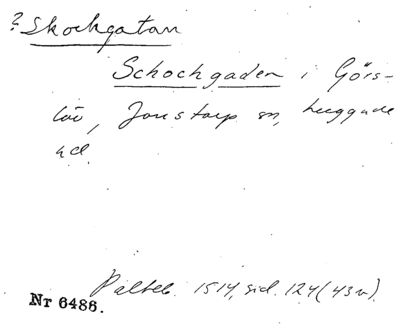 ? Skockgatan
Schochgaden i Görs-
löv, Jonstorp sn, Luggude
hd.
Palteb. 1514, sid. 124 (43v).
Nr 6486.